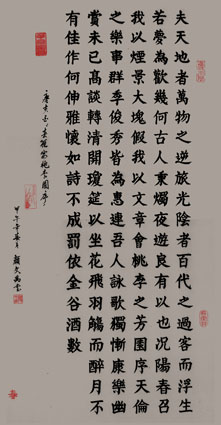 夫天地者萬物之逆旅光陰者百代之過客而浮生
若夢為歡幾何古人秉燭夜遊良有以也況陽春召
我以煙景大塊假我以文章會桃李之芳園序天倫
之樂事群季俊秀皆為惠連吾人詠歌獨慚康樂幽
賞未已高談轉清開瓊筵以坐花飛羽觴而醉月不
有佳作何伸雅懷如詩不成罰依金谷酒數
春夜宴桃李園序
甲午年